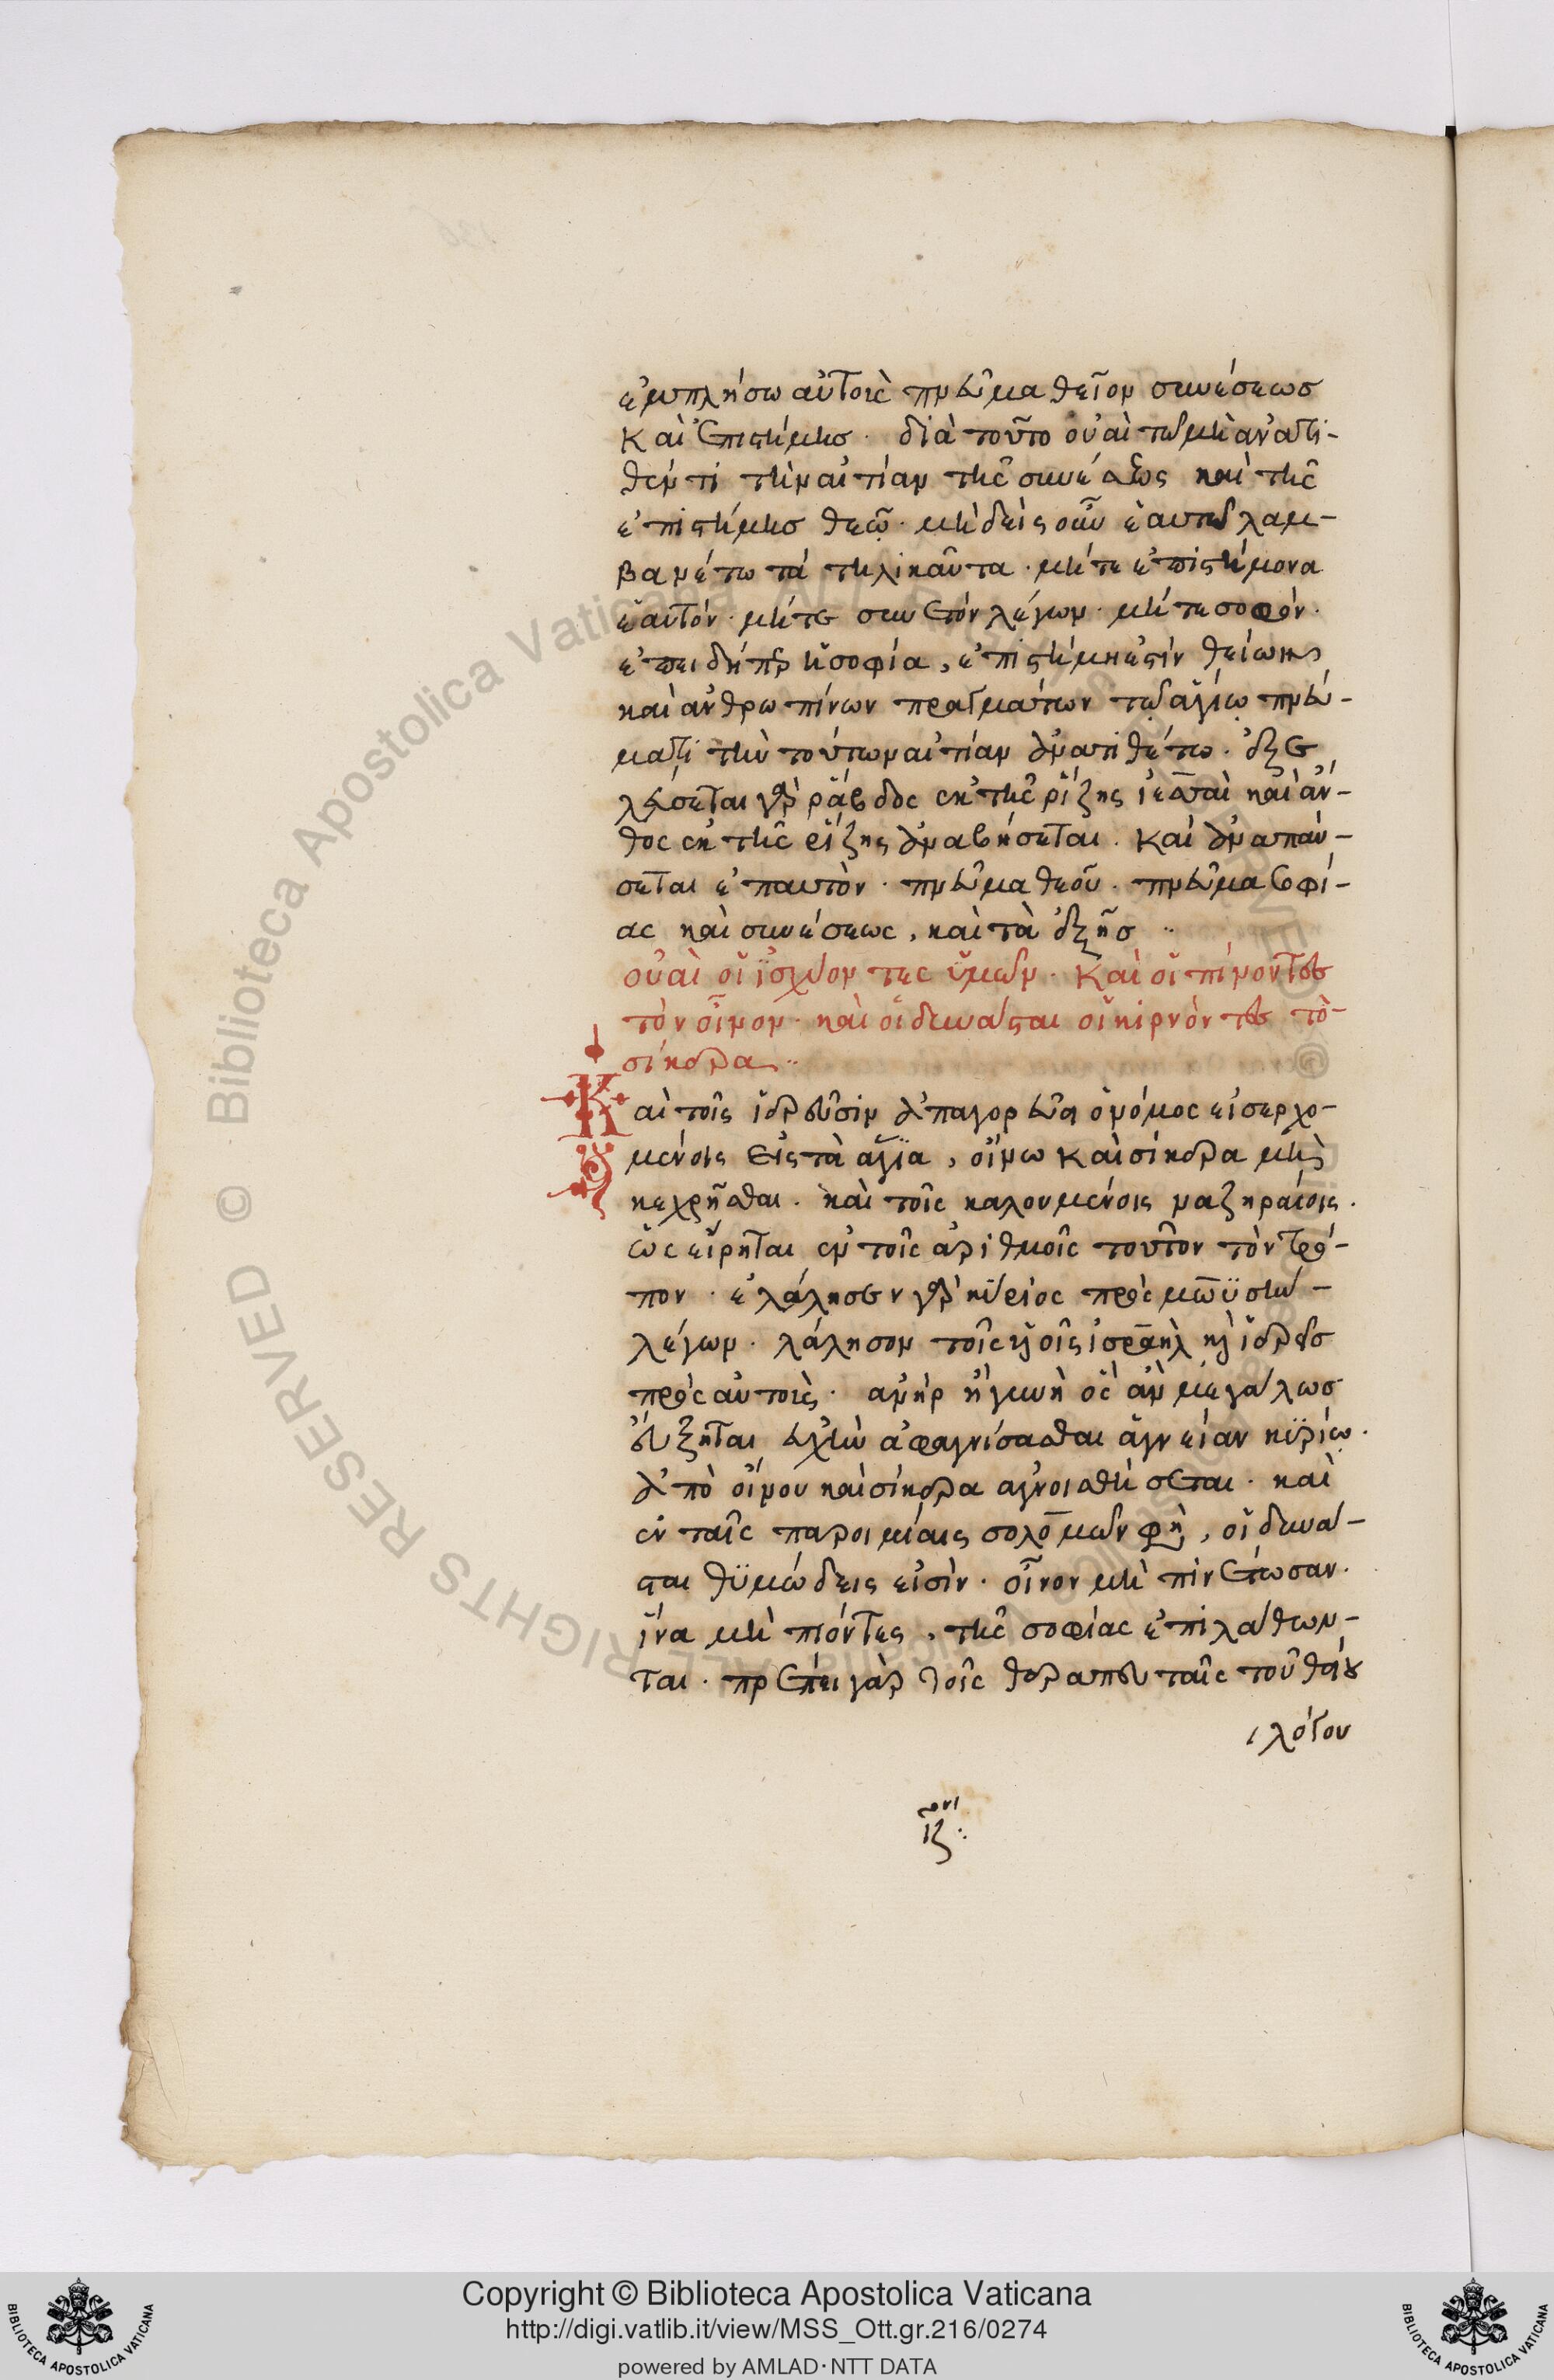 ἐμπλήσω αὐτοὺς πνεῦμα θεῖον συνέσεως
καὶ ἐπιστήμης. διὰ τοῦτο οὐαὶ τῶ μὴ ἀνατι-
θέντι τὴν αἰτίαν τῆς συνέσεως καὶ τῆς
ἐπιστήμης θεῷ. μὴδεὶς οὖν ἑαυτῶ λαμ-
βανέτω τὰ τηλικαῦτα. μήτε ἐπιστήμονα
ἑαυτόν. μήτε συνετὸν λέγων. μήτε σοφόν.
ἐπειδήπερ ἡ σοφία, ἐπιστήμη ἐστὶν θείων κ
καὶ ἀνθρωπίνων πραγμάτων τῷ ἁγίῳ πνεύ-
ματι τὴν τούτων αἰτίαν ἀνατιθέτω. ἐξε
λεύσεται γὰρ ῥάβδος ἐκ τῆς ῥίζης ἰεσσαὶ καὶ ἄν-
θος ἐκ τῆς ῥίζης ἀναβήσεται. καὶ ἀναπαύ-
σεται ἐπ αυτὸν. πνεῦμα θεοῦ. πνεῦμα σοφί-
ας καὶ συνέσεως, καὶ τὰ ἑξῆς ..
οὐαὶ οἱ ἰσχύοντες ὑμῶν. καὶ οἱ πίνοντες
τὸν οἶνον. καὶ οἱ δυνάσται οἱ κιρνόντες τὸ-
σίκερα..
Καὶ τοῖς ἱερεῦσιν ἀπαγορεύει ὁ νόμος εἰσερχο-
μένοις εἰς τὰ ἅγϊα, οἴνω καὶ σίκερα μὴ
κεχρῆσθαι. καὶ τοῖς καλουμένοις ναζηραίοις.
ὡς εἴρηται ἐν τοῖς ἀριθμοῖς τοῦτον τὸν τρό-
πον. ἐλάλησεν γὰρ κύριος πρὸς μωϋσῆν-
λέγων. λάλησον τοῖς υἱοῖς ἰσραηλ κ ἐρεῖς
πρὸς αὐτοὺς. ἀνὴρ ἢ γυνὴ ὃς ἂν μεγάλως
εὔξηται εὐχὴν ἀφαγνίσασθαι ἁγνείαν κϋρίῳ.
ἀπὸ οἴνου καὶ σίκερα ἁγνοισθήσεται. καὶ
ἐν ταῖς παροιμίαις σολομὼν φη, οἱ δυνά-
σται θϋμώδεις εἰσὶν. οἶνον μὴ πινέτωσαν.
ἵνα μὴ πιόντες, τῆς σοφίας ἐπιλάθων-
ται. πρέπει γὰρ τοῖς θεραπευταῖς τοῦ θείου
λόγου
ιζ:
Copyright © Biblioteca Apostolica Vaticana
http://digi.vatlib.it/view/MSS_Ott.gr.216/0274
powered by AMLAD·NTT DATA